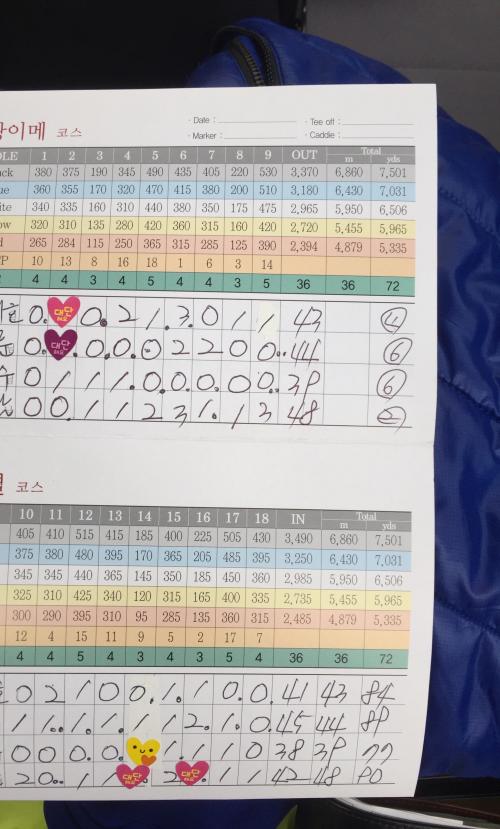 이메 코스
· Date : · Tee off :
· Marker : · Caddie :
OLE 1 2 3 4 5 6 7 8 9 OUT Total
m yds
ack 380 375 190 345 490 435 405 220 530 3,370 6,860 7,501
ue 360 355 170 320 470 415 380 200 510 3,180 6,430 7,031
ite 340 335 160 310 440 380 350 175 475 2,965 5,950 6,506
ow 320 310 135 280 420 360 315 160 420 2,720 5,455 5,965
d 265 284 115 250 365 315 285 125 390 2,394 4,879 5,335
P 10 13 8 16 18 1 6 3 14
4 4 3 4 5 4 4 3 5 36 36 72
0. 대단해요 0. 2 1 3. 0 1 1 43 ④
0. 대단해요 0. 0. 0 2 2 0 0.. 44 ⑥
수 0 1 1 1. 0. 0. 0. 0 0. 39 ⑥
0 0. 1 1 2 3 1. 1 3 48 ②
코스
10 11 12 13 14 15 16 17 18 IN Total
m yds
405 410 515 415 185 400 225 505 430 3,490 6,860 7,501
375 380 480 395 170 365 205 485 395 3,250 6,430 7,031
345 345 440 365 145 350 185 450 360 2,985 5,950 6,506
325 310 425 340 120 315 165 400 335 2,735 5,455 5,965
300 290 395 310 95 285 135 360 315 2,485 4,879 5,335
12 4 15 11 9 5 2 17 7
4 4 5 4 3 4 3 5 4 36 36 72
0 2 1 0 0. 1. 1 0. 0. 41 43 84
1 1.. 1. 1 1 1 2. 1. 0. 45 44 89
0 0 0. 0. 1. 1 1 0 38 39 77
2 0.. 1 1 대단해요 2 대단해요 1 1 42 48 90